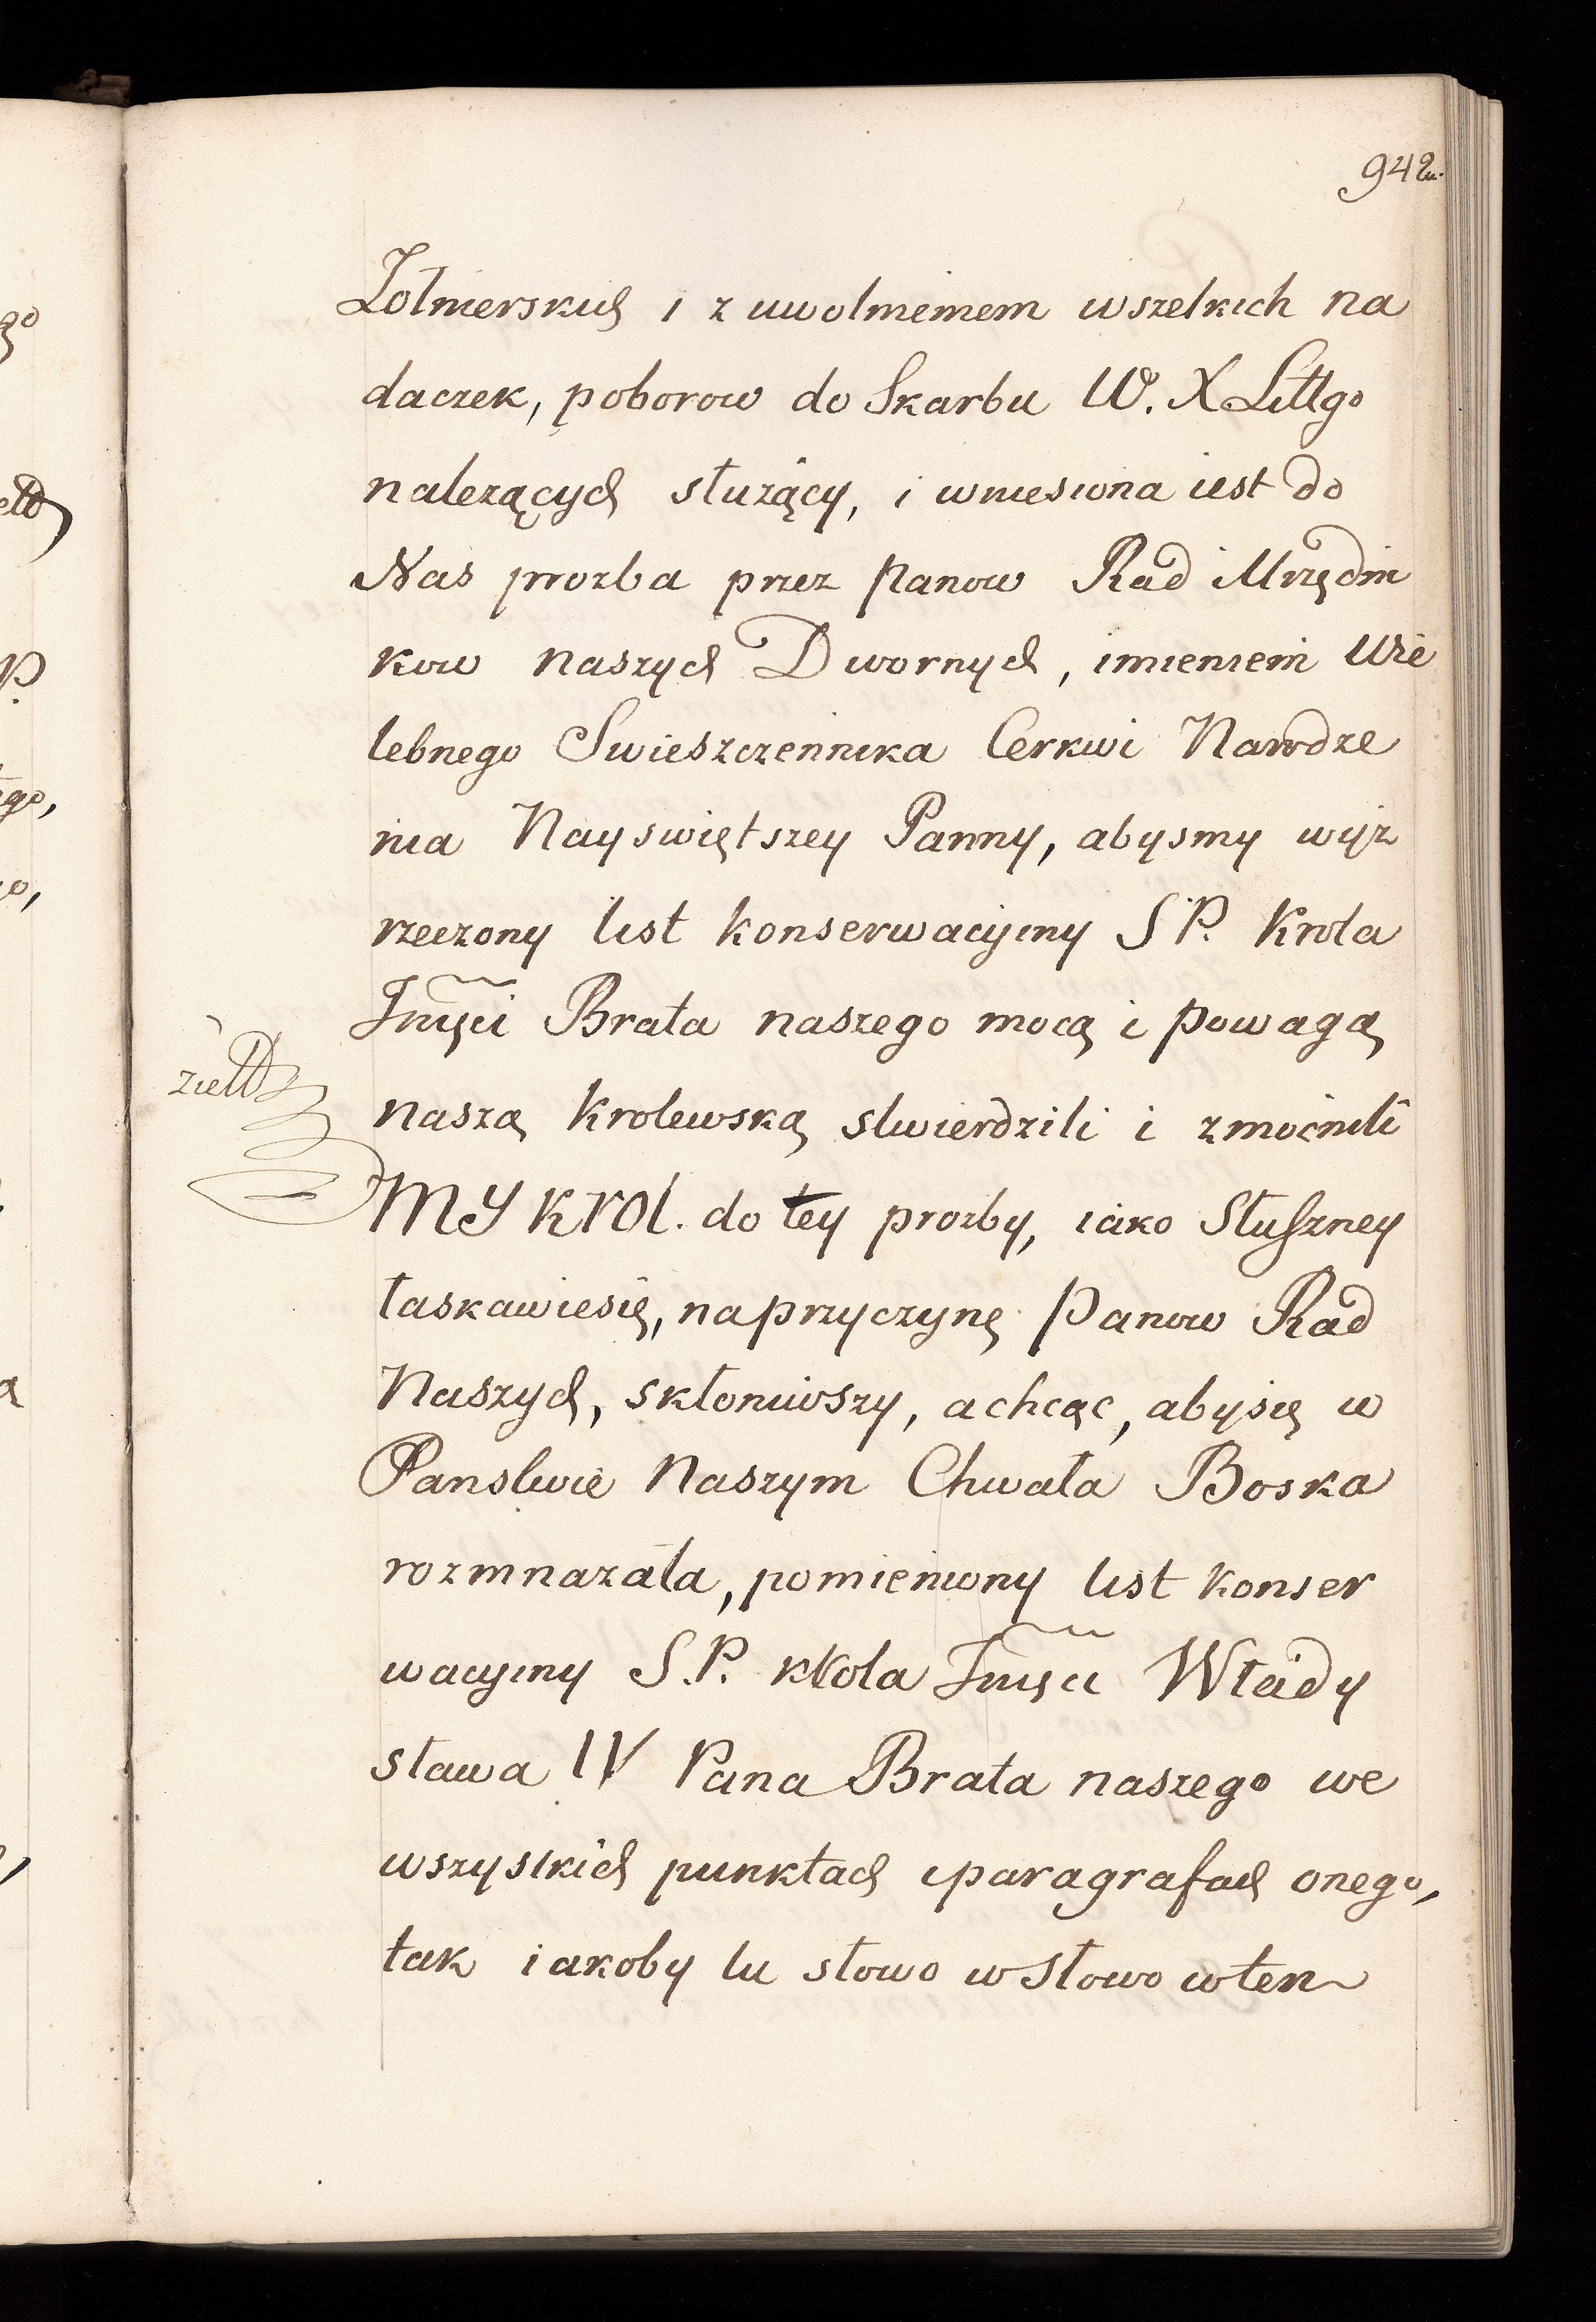 942.
Zołnierskich i z uwolnieniem wszelkich na
daczek, poborow do Skarbu W. X Littgo
nalezących służący, i wniesiona iest do
Nas prozba przez Panow Rad i Urzędni
kow naszych Dwornych, imieniem Wie
lebnego Swieszczennika Cerkwi Narodze
nia Nayswiętszey Panny, abysmy wyz
rzeczony list konserwacyiny S P. Krola
Jmsci Brata naszego mocą i powagą
naszą Krolewską stwierdzili i zmocnili
MY KROL. do tey prozby, iako Słuszney
łaskawiesię, naprzyczynę Panow Rad
Naszych, skłoniwszy, a chcąc, abysię w
Panstwie Naszym Chwała Boska
rozmnazała, pomieniony list konser
wacyiny S.P. kRola Jmsci Włady
sława IV Pana Brata naszego we
wszystkich punktach i paragrafach onego,
tak iakoby tu słowo wsłowo wten